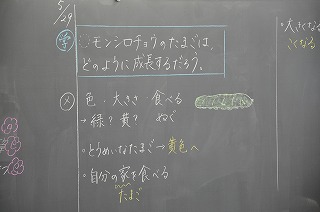 5/29
学 ○モンシロチョウのたまごは、
どのように成長するだろう。
・大きくなる
くなる
㋱ 色・大きさ 食べる
→緑?黄? ぬぐ
・とうめいなたまご→黄色へ
・自分の家を食べる
たまご